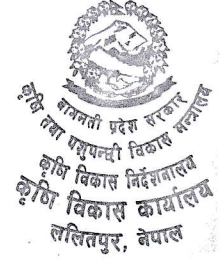 बागमती प्रदेश सरकार
कृषि तथा पशुपन्छी विकास मन्त्रालय
कृषि विकास निर्देशनालय
कृषि विकास कार्यालय
ललितपुर, नेपाल